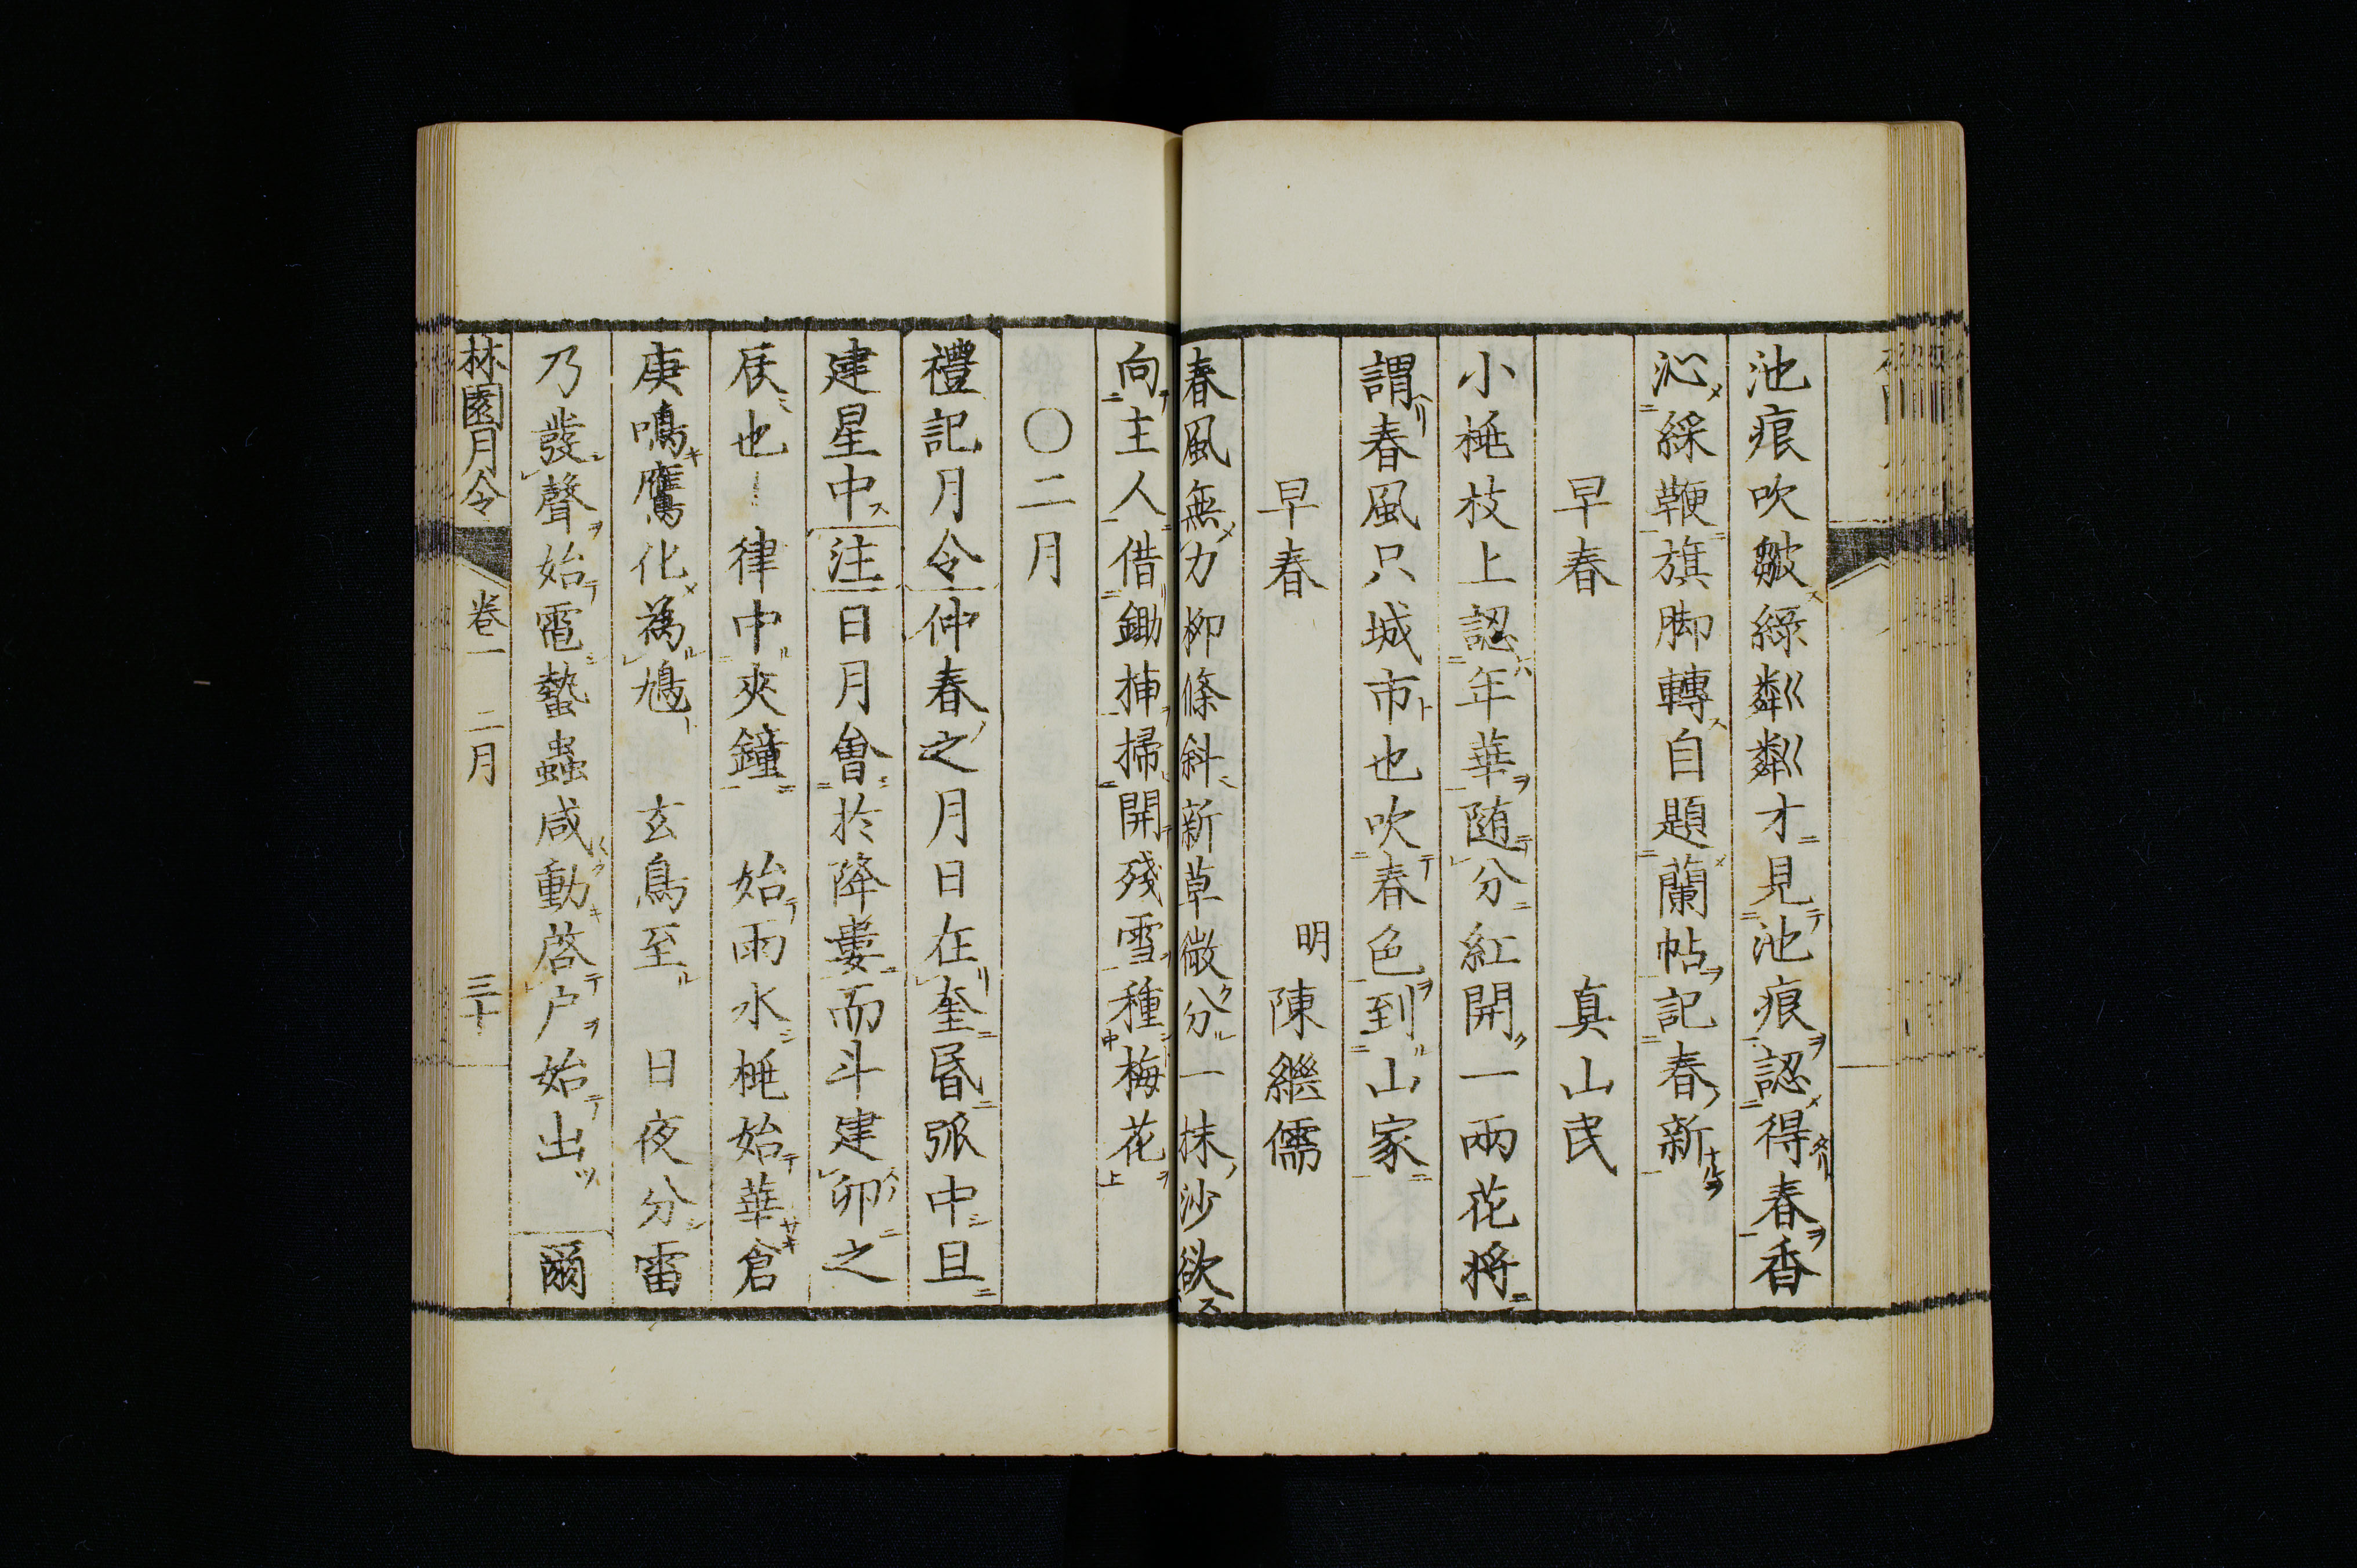 池痕吹皺綠粼粼才見池痕認得春香
沁綵鞭旗脚轉自題蘭帖記春新
早春　真山民
小桃枝上認年華隨分紅開一兩花將
謂春風只城市也吹春色到山家
早春　明陳繼儒
春風無力柳條斜新草微分一抹沙欲
向主人借鋤插掃開殘雪種梅花
○二月
禮記月令仲春之月日在奎昏弧中旦
建星中注日月會於降婁而斗建卯之
辰也 律中夾鐘 始雨水桃始華倉
庚鳴鷹化為鳩 玄鳥至 日夜分雷
乃發聲始電蟄蟲咸動啓戶始出 爾
林園月令 卷一 二月 三十